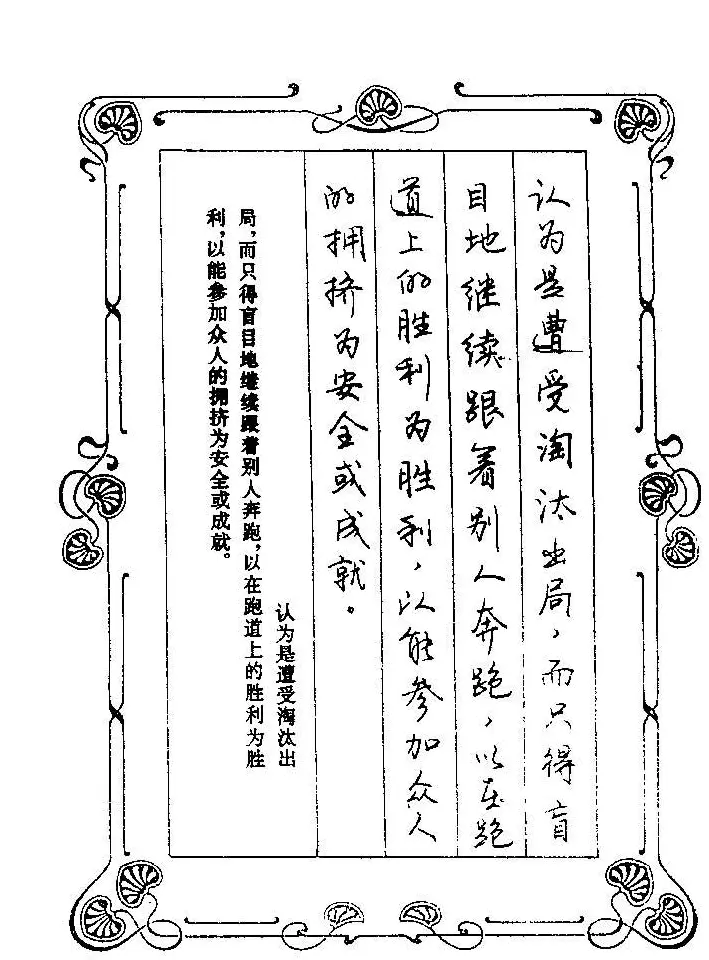 认为是遭受淘汰出局，而只得盲
目地继续跟着别人奔跑，以在跑
道上的胜利为胜利，以能参加众人
的拥挤为安全或成就。
认为是遭受淘汰出
局，而只得盲目地继续跟着别人奔跑，以在跑道上的胜利为胜
利，以能参加众人的拥挤为安全或成就。